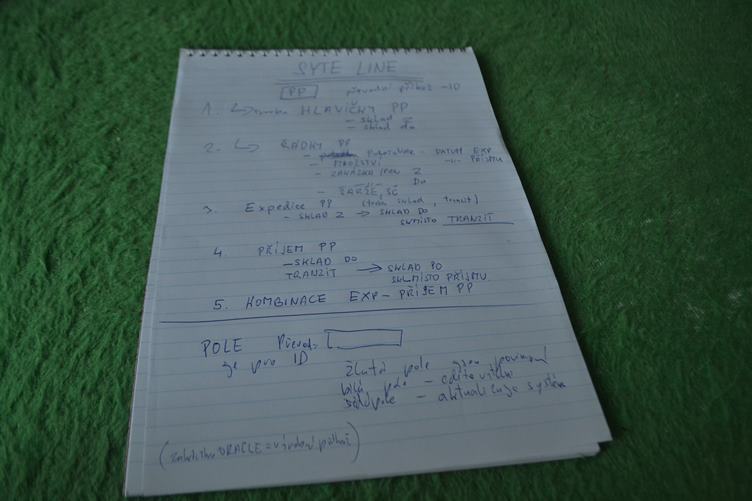 SYTE LINE
PP převodní příkaz - ID
1. HLAVIČKY PP
- SKLAD Z
- sklad do
2. ŘÁDKY PP
- položka - DATUM EXP
- MNOŽSTVÍ -"- PŘÍJMU
- ZAKÁZKA Z
DO
- ŠARŽE, SČ
3. Expedice PP (tran sklad, tranzit)
- SKLAD Z → SKLAD DO
SKLMÍSTO TRANZIT
4. PŘÍJEM PP
- SKLAD DO
TRANZIT → SKLAD DO
SKLMÍSTO PŘÍJMU
5. KOMBINACE EXP - PŘÍJEM PP
POLE Převod:
je pro ID
žlutá pole jsou povinná
bílá pole - editovatelné
pole - aktualizuje systém
ORACLE = výrobní příkaz)